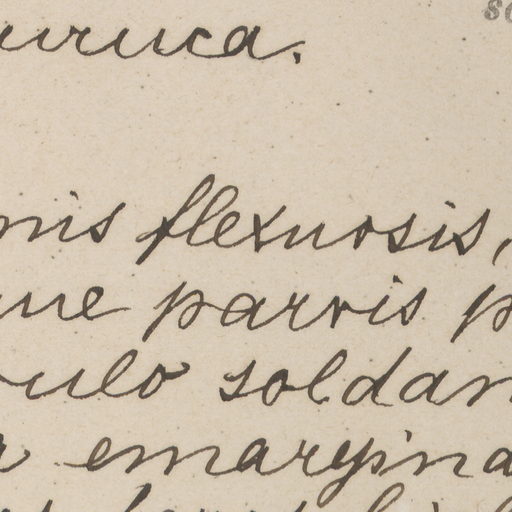 uruca.
nis flexuosis,
ue parvis p
ulo soldan
emargina